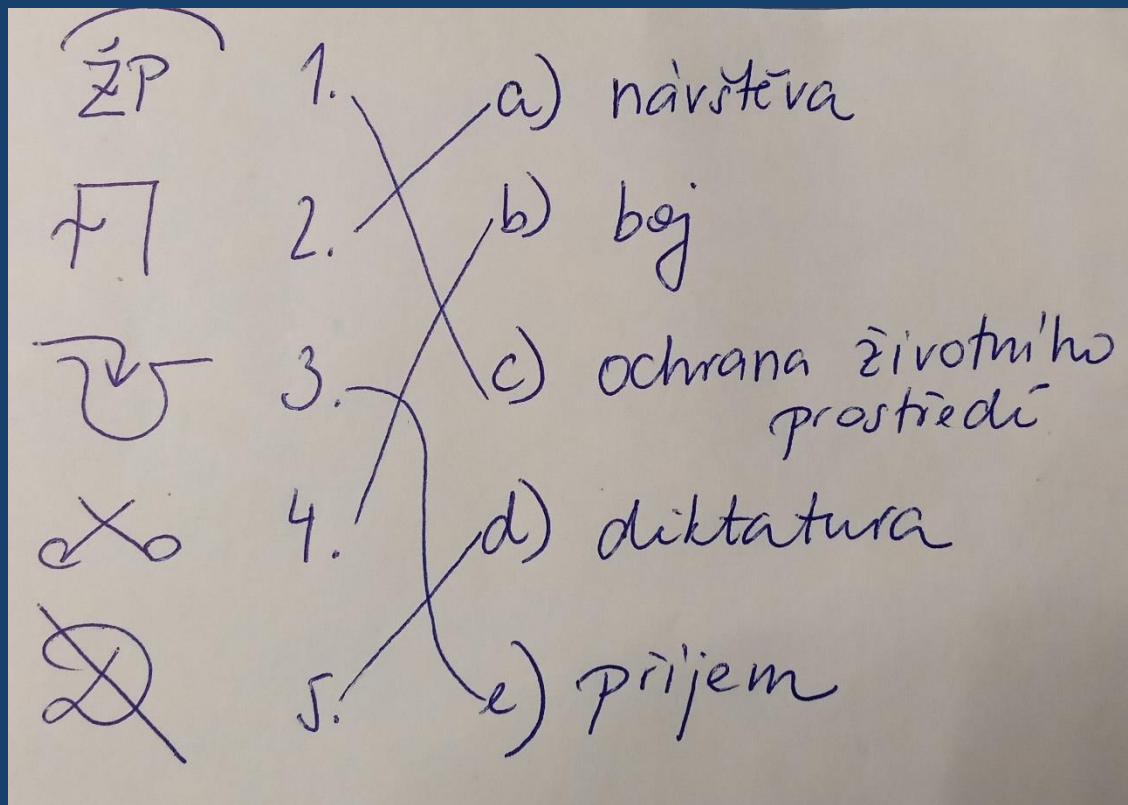 ŽP 1. a) návštěva
2. b) boj
3. c) ochrana životního
prostředí
4. d) diktatura
D 5. e) příjem